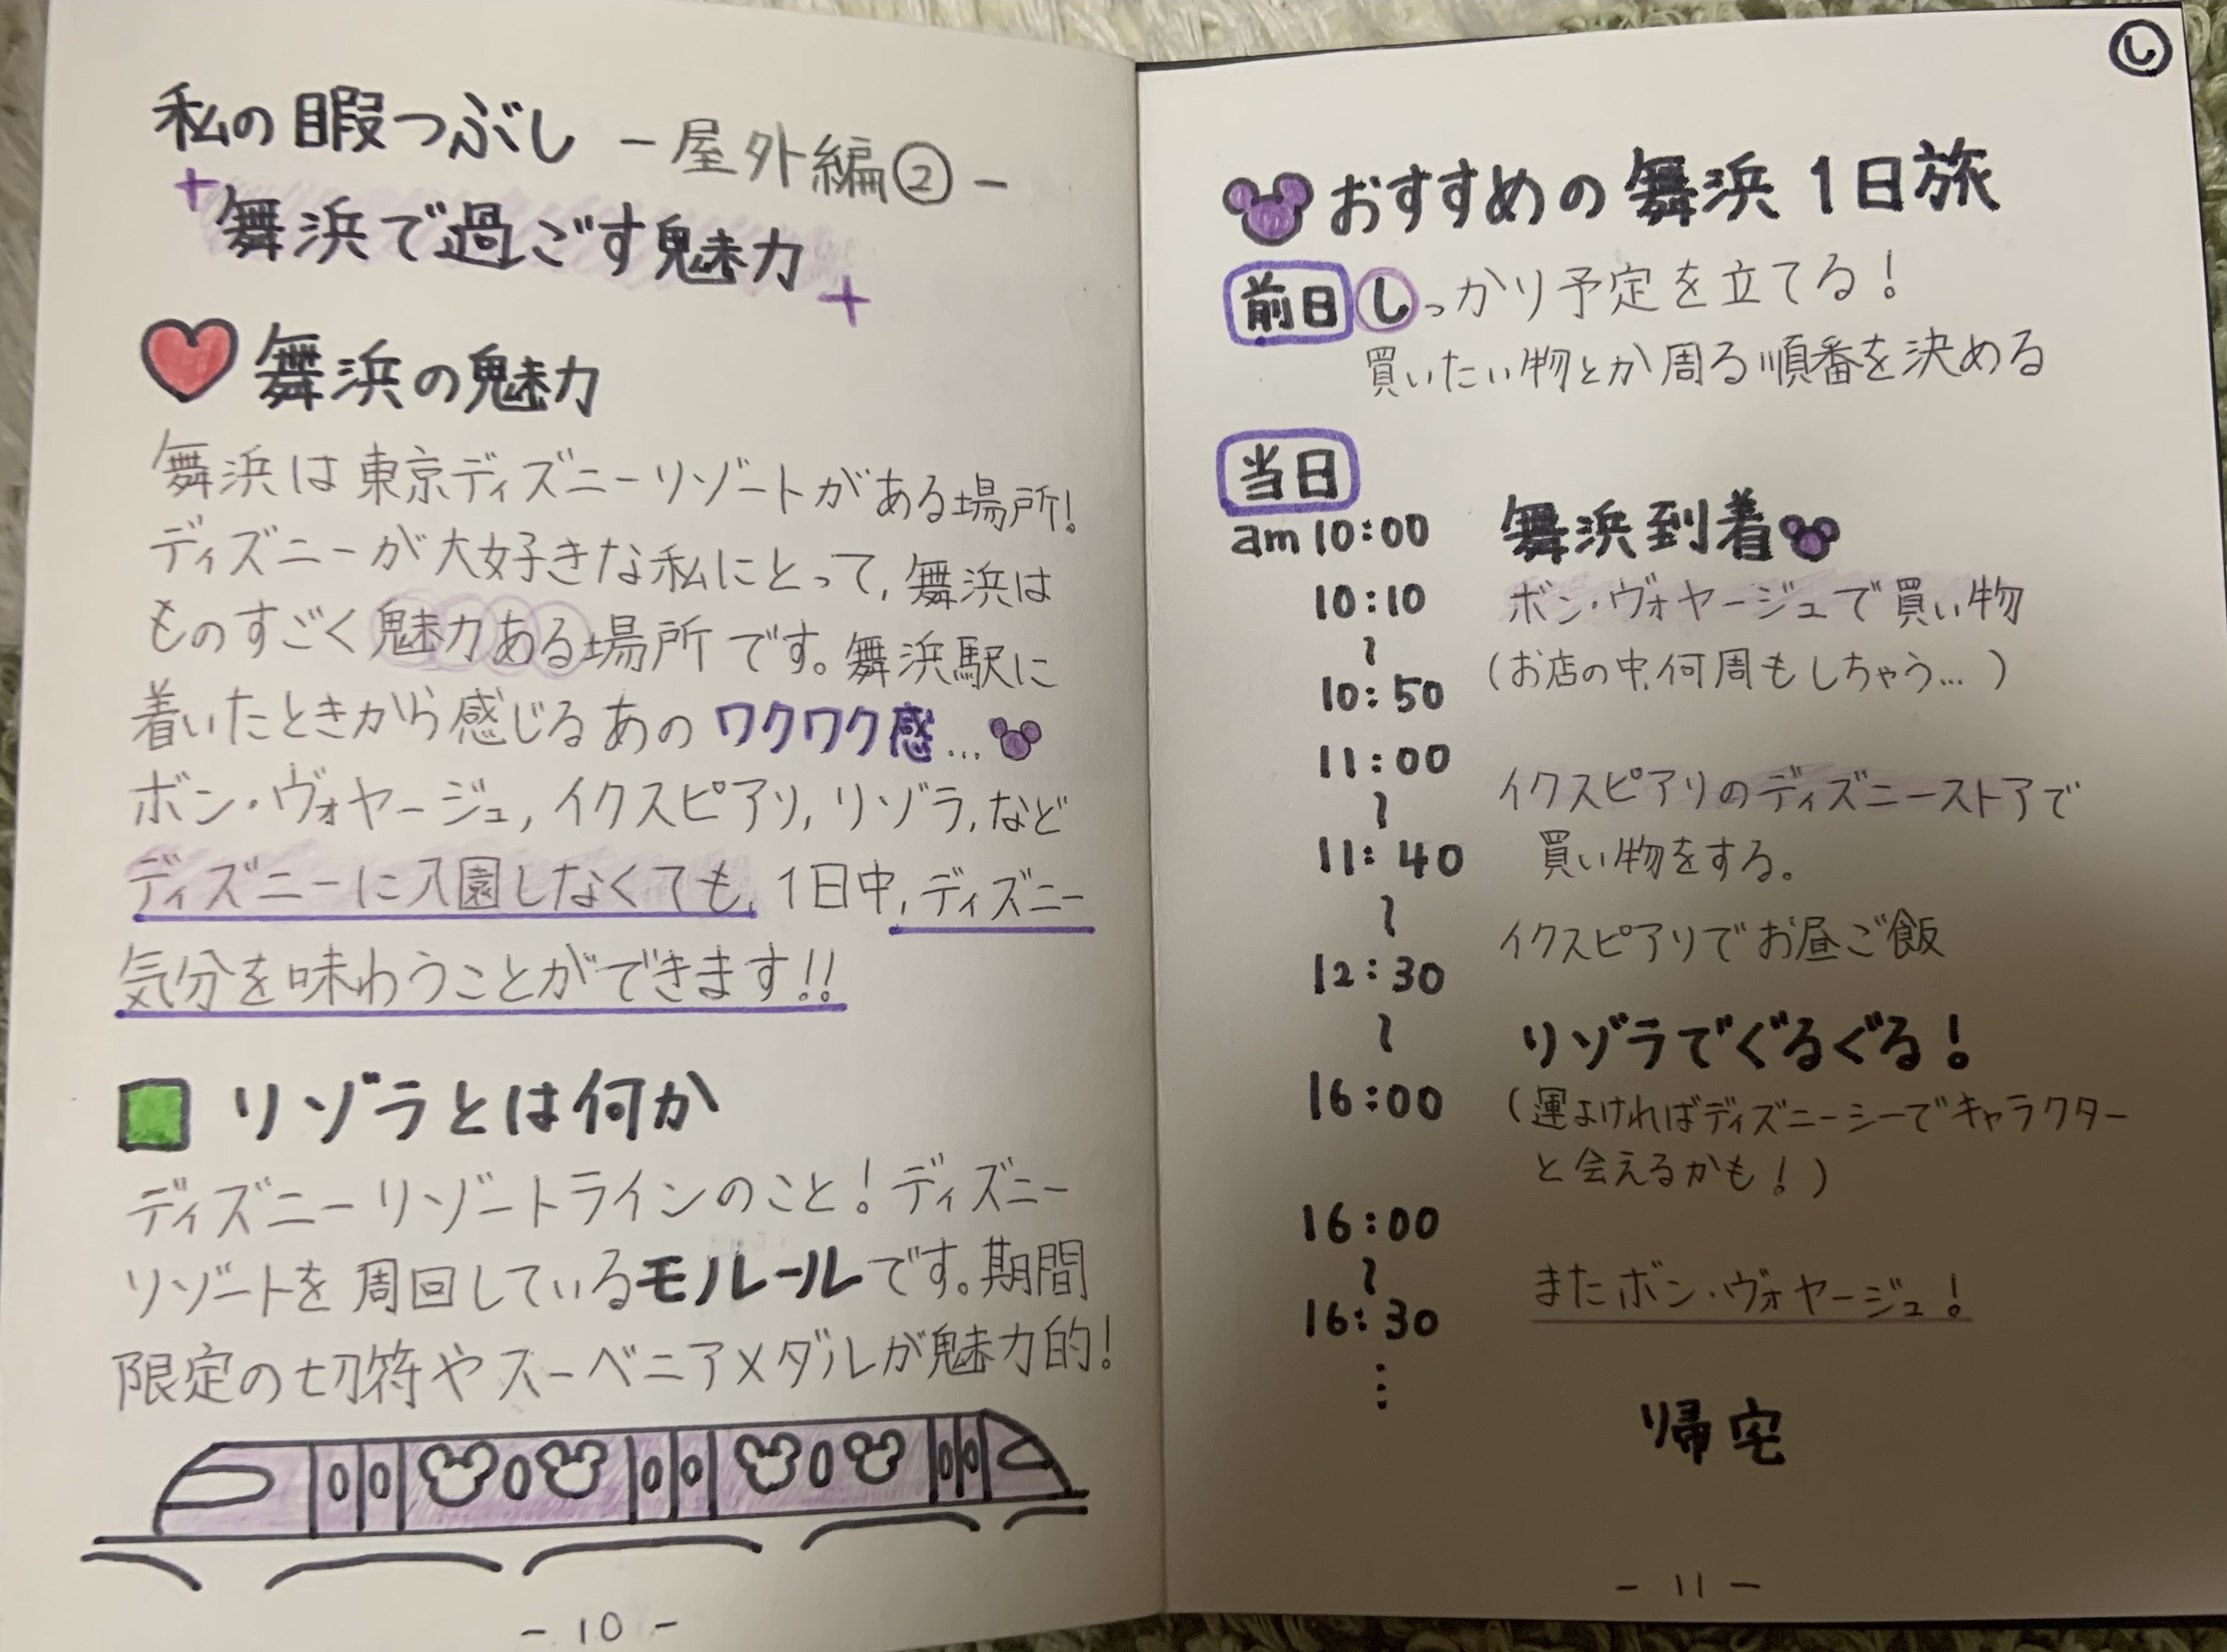 私の暇つぶし -屋外編②-
舞浜で過ごす魅力
舞浜の魅力
舞浜は東京ディズニーリゾートがある場所!
ディズニーが大好きな私にとって,舞浜は
ものすごく魅力ある場所です。舞浜駅に
着いたときから感じるあのワクワク感...
ボン・ヴォヤージュ,イクスピアリ,リゾラ,など
ディズニーに入園しなくても,1日中,ディズニー
気分を味わうことができます!!
リゾラとは何か
ディズニーリゾートラインのこと!ディズニー
リゾートを周回しているモノレールです。期間
限定の切符やスーベニアメダルが魅力的!
-10-
し
おすすめの舞浜1日旅
前日 しっかり予定を立てる!
買いたい物とか周る順番を決める
当日
am10:00 舞浜到着
10:10 ボン・ヴォヤージュで買い物
~ (お店の中,何周もしちゃう...)
10:50
11:00 イクスピアリのディズニーストアで
~
11:40 買い物をする。
~ イクスピアリでお昼ご飯
12:30
~ リゾラでぐるぐる!
16:00 (運よければディズニーシーでキャラクター
と会えるかも!)
16:00
~ またボン・ヴォヤージュ!
16:30
⋮
帰宅
-11-